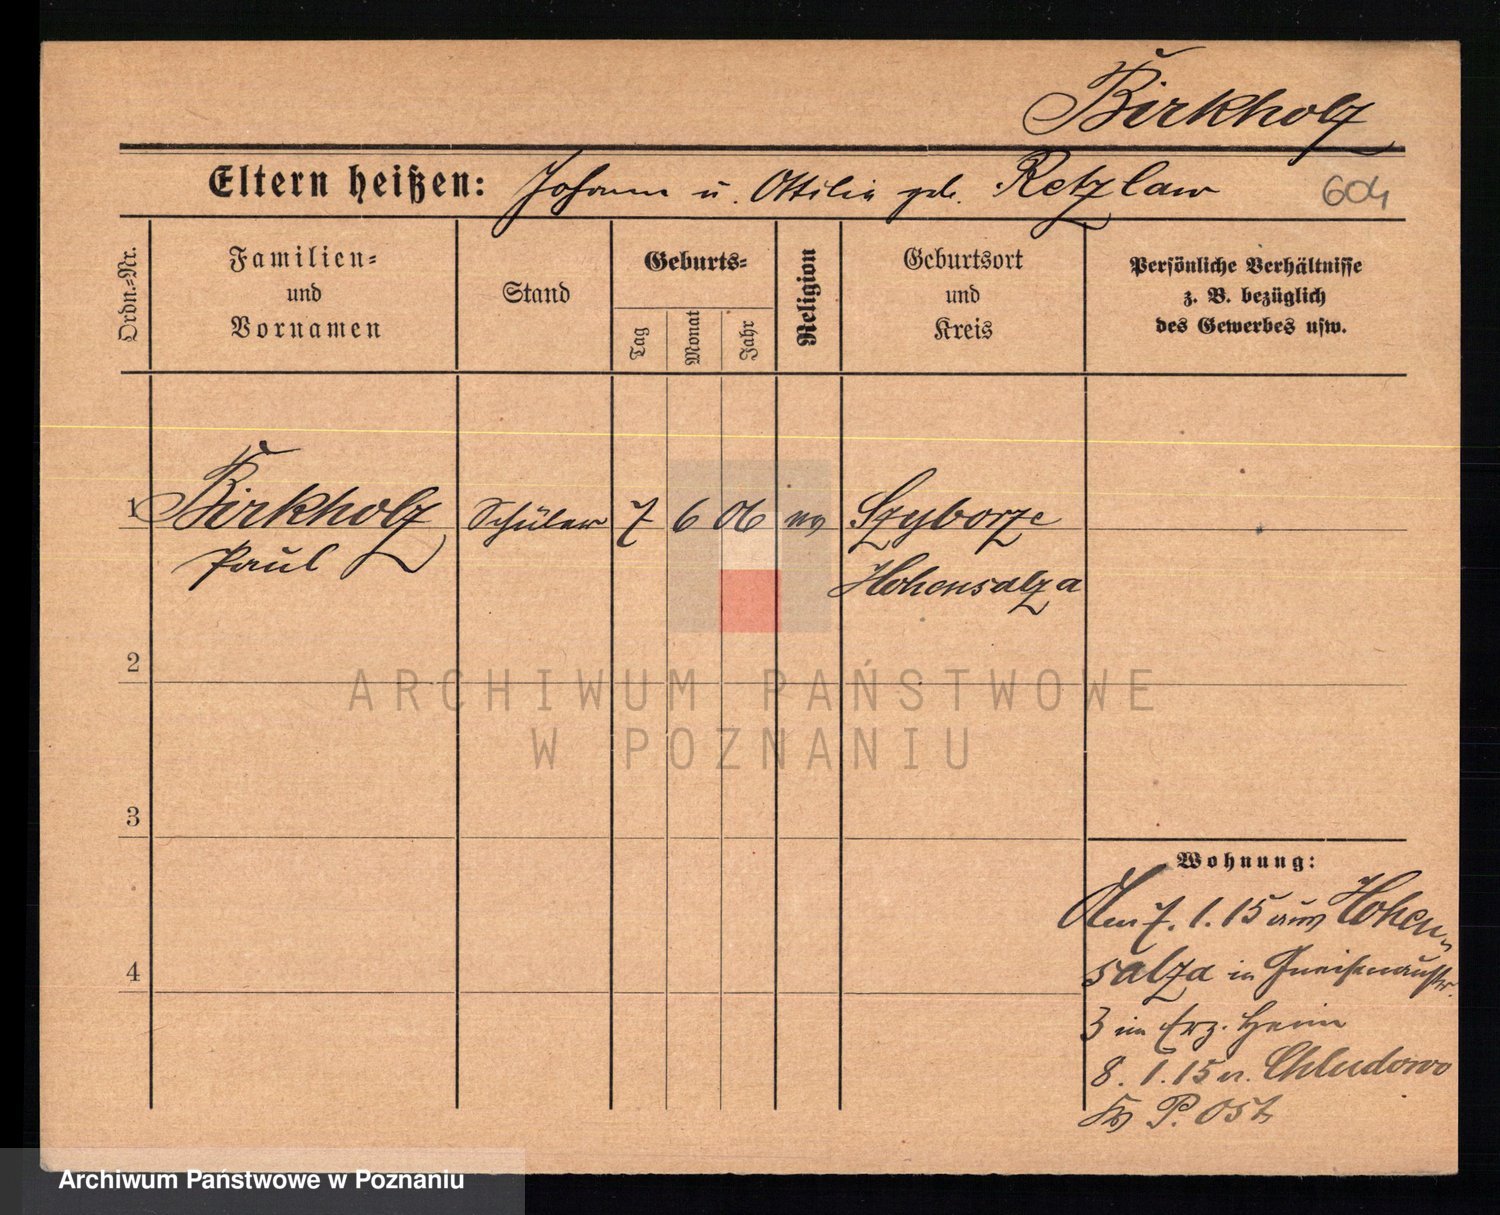 Birkholz
Eltern heißen: Johann u. Ottilie geb. Retzlaw
604
Ordn.-Nr.
Familien-
und
Vornamen
Stand
Geburts-
Tag
Monat
Jahr
Religion
Geburtsort
und
Kreis
Persönliche Verhältnisse
z. B. bezüglich
des Gewerbes usw.
1 Birkholz Schüler 7 6 06 ev Szyborze
Paul Hohensalza
2
ARCHIWUM PAŃSTWOWE
W POZNANIU
3
Wohnung:
Am 7. 1. 15 aus Hohen-
salza in Gneisenaustr.
4
3 im Erz. Heim
8. 1. 15 n. Chludowo
Kr P. Ost
Archiwum Państwowe w Poznaniu